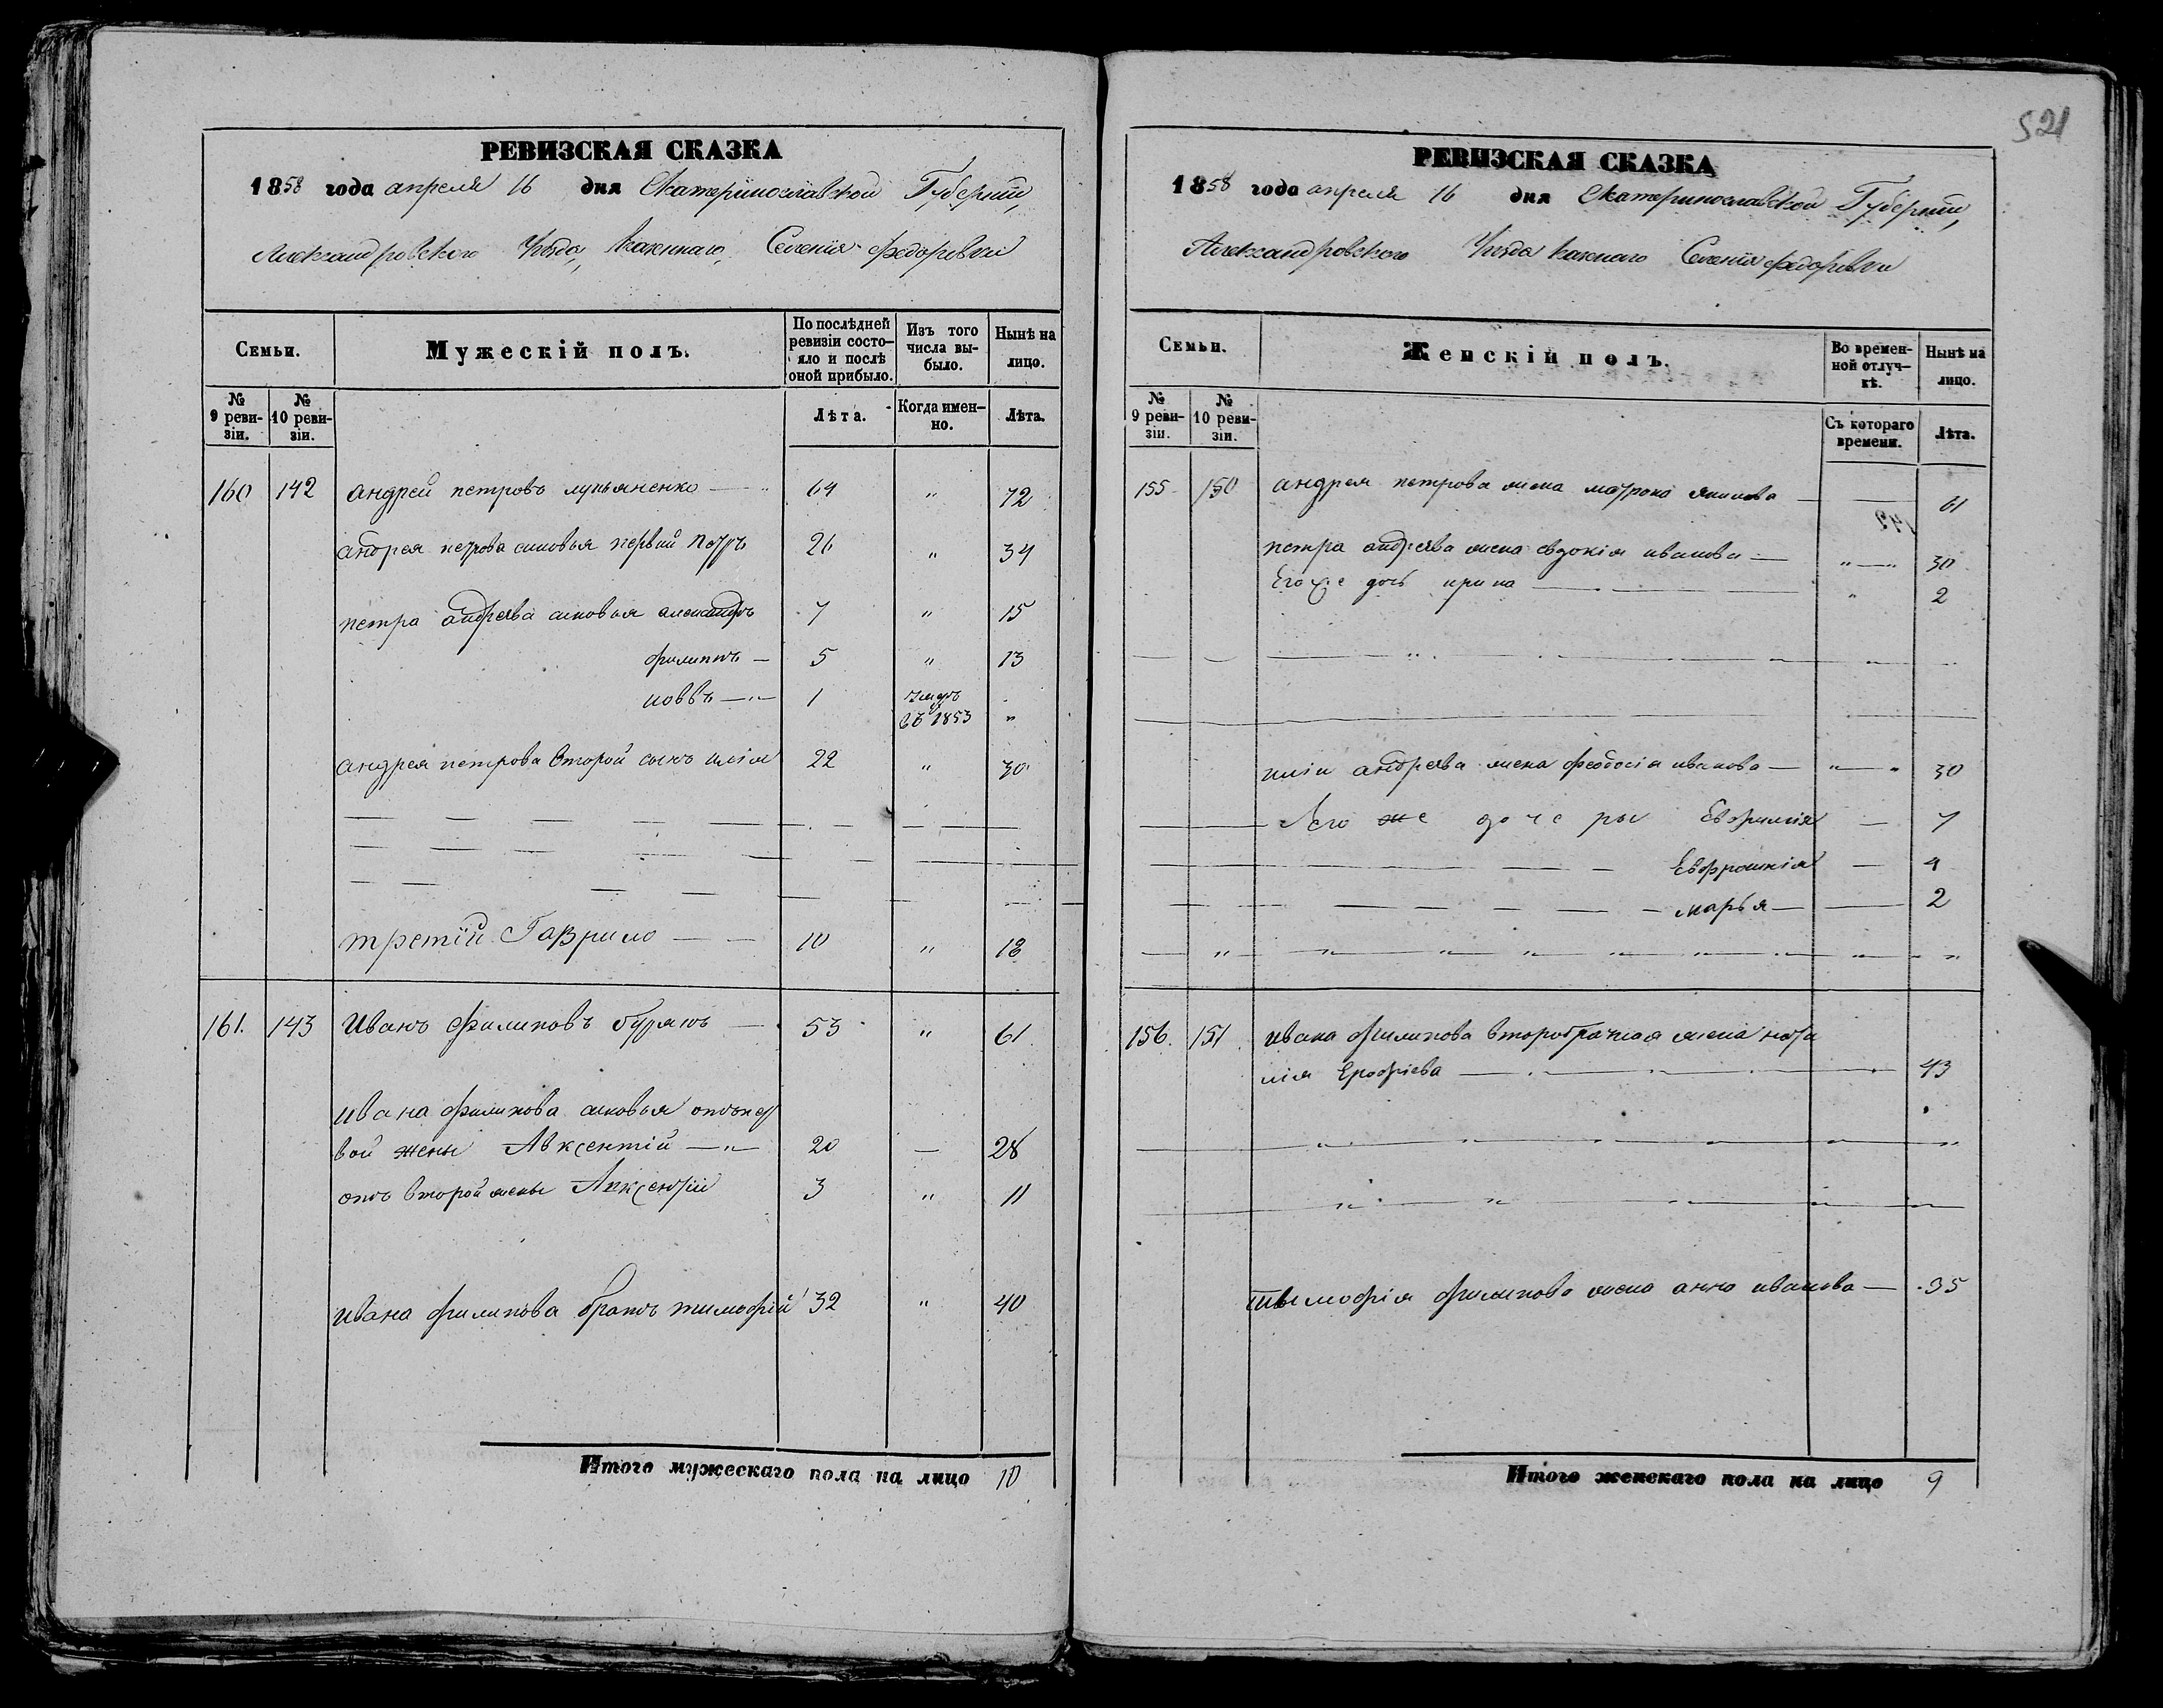 521
РЕВИЗСКАЯ СКАЗКА
1858 года апреля 16 дня Екатеринославской Губернии,
Александровского Уѣзда, казеннаго, Селения Федоровки
Семьи. Мужескій полъ. По послѣдней ревизіи состояло и послѣ оной прибыло. Изъ того числа выбыло. Нынѣ на лицо.
№ 9 ревизіи. № 10 ревизіи. Лѣта. Когда именно. Лѣта.
160 142 андрей петровъ лупьяненко — 64 " 72
андрея петрова сыновья первий петръ 26 " 34
петра андреева сыновья александръ 7 " 15
филипъ — 5 " 13
1 умеръ
въ 1853 "
андрея петрова второй сынъ илія 22 " 30
третій Гаврило — — 10 " 18
161. 143 Иванъ филиповъ бурякъ — 53 " 61
ивана филипова сыновья отъ пер
вой жены Авксентій — " — 20 — 28
отъ второй жены Авксентій 3 " 11
ивана филипова братъ тимофій 32 " 40
Итого мужескаго пола на лицо 10
РЕВИЗСКАЯ СКАЗКА
1858 года апреля 16 дня Екатеринославской Губернии,
Александровского Уѣзда казенаго Селения федоровки
Семьи. Женскій полъ. Во временной отлучкѣ. Нынѣ на лицо.
№ 9 ревизіи. № 10 ревизіи. Съ котораго времени. Лѣта.
155 150 андрея петрова жена матрона якимова — — 61
петра андреева жена евдокія иванова — " — " 30
Его же дочь ирина — " 2
иліи андреева жена феодосія иванова — " — " 30
Его же дочери Евфимія — 7
Евфросинія — 4
марья — — 2
156. 151 ивана филипова второбрачная жена ната
лія Ерофіева — 43
тимофія филипова жена анна иванова — 35
Итого женскаго пола на лицо 9